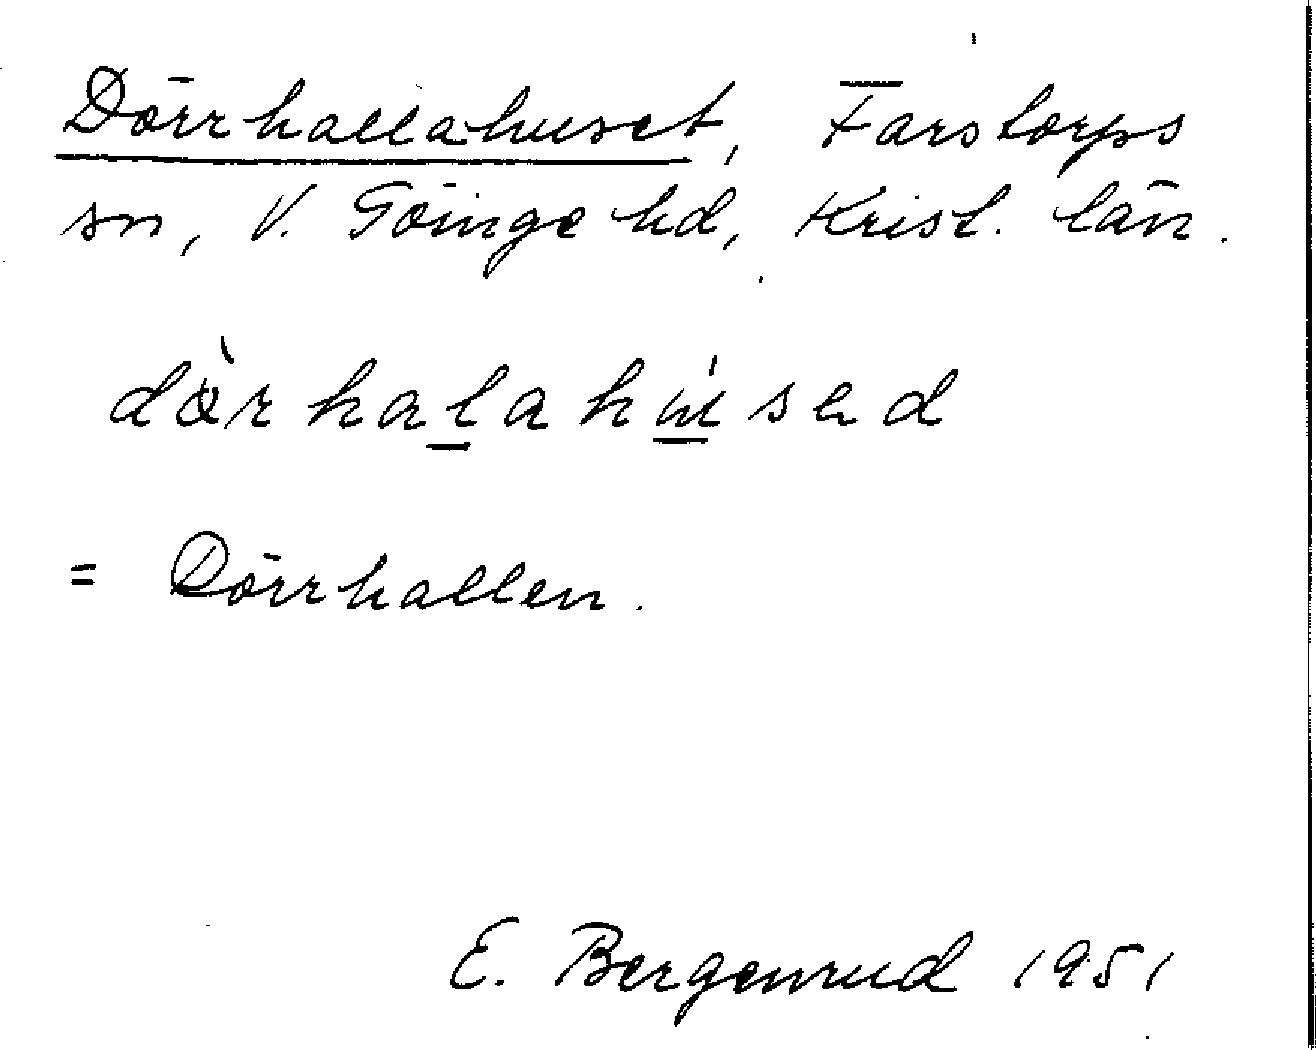 Dörrhallahuset, Farstorps
sn, V. Göinge hd, Krist. län.
= Dörrhallen.
E. Bergenrud 1951